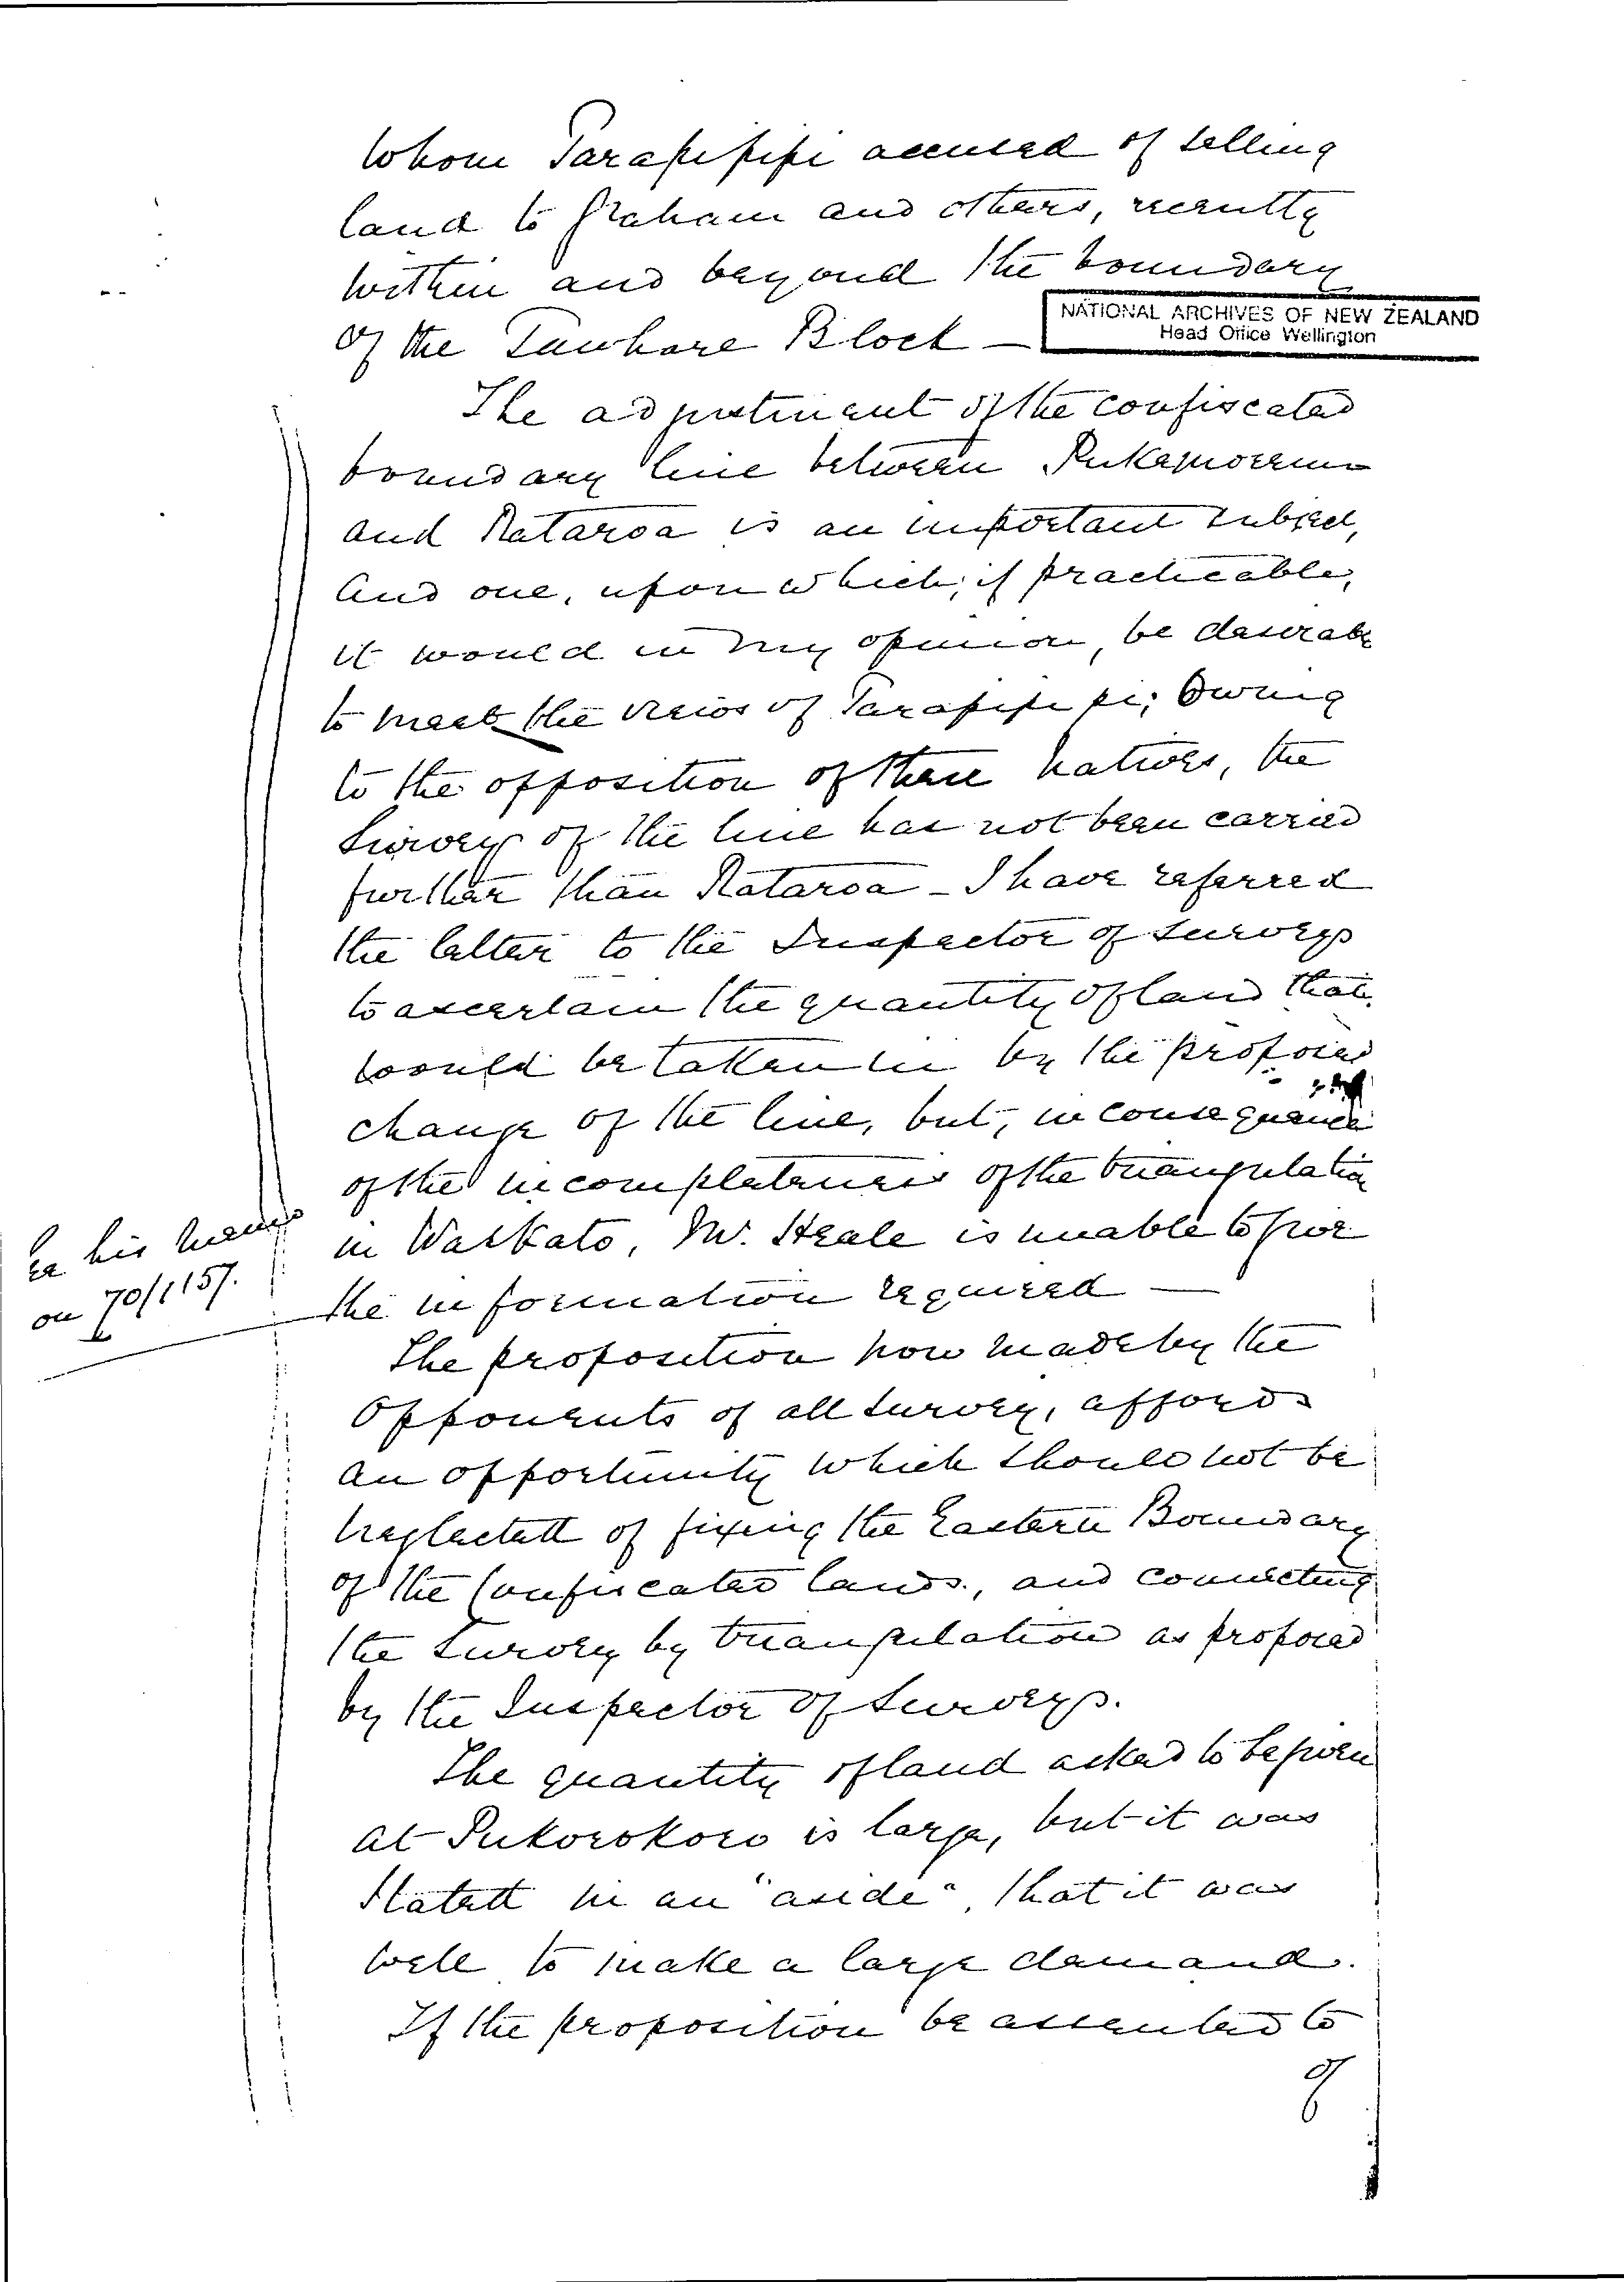 whom Tarapipipi accused of selling
land to Graham and others, recently
within and beyond the boundary
of the Tawhare Block —
NATIONAL ARCHIVES OF NEW ZEALAND
Head Office Wellington
The adjustment of the confiscated
boundary line between Pukemoremore
and Rataroa is an important subject,
and one, upon which, if practicable,
it would in my opinion, be desirable
to meet the views of Tarapipipi; Owing
to the opposition of these natives, the
Survey of the line has not been carried
further than Rataroa — I have referred
the letter to the Inspector of Surveys
to ascertain the quantity of land that
would be taken in by the proposed
change of the line, but, in consequence
of the incompleteness of the triangulation
in Waikato, Mr. Heale is unable to give
the information required —
his memo
on 70/1157.
The proposition now made by the
Opponents of all survey, affords
an opportunity which should not be
neglected of fixing the Eastern Boundary
of the Confiscated lands, and connecting
the survey by triangulation as proposed
by the Inspector of Surveys.
The quantity of land asked to be given
at Pukorokoro is large, but it was
stated in an "aside", that it was
well to make a large demand.
If the proposition be assented to